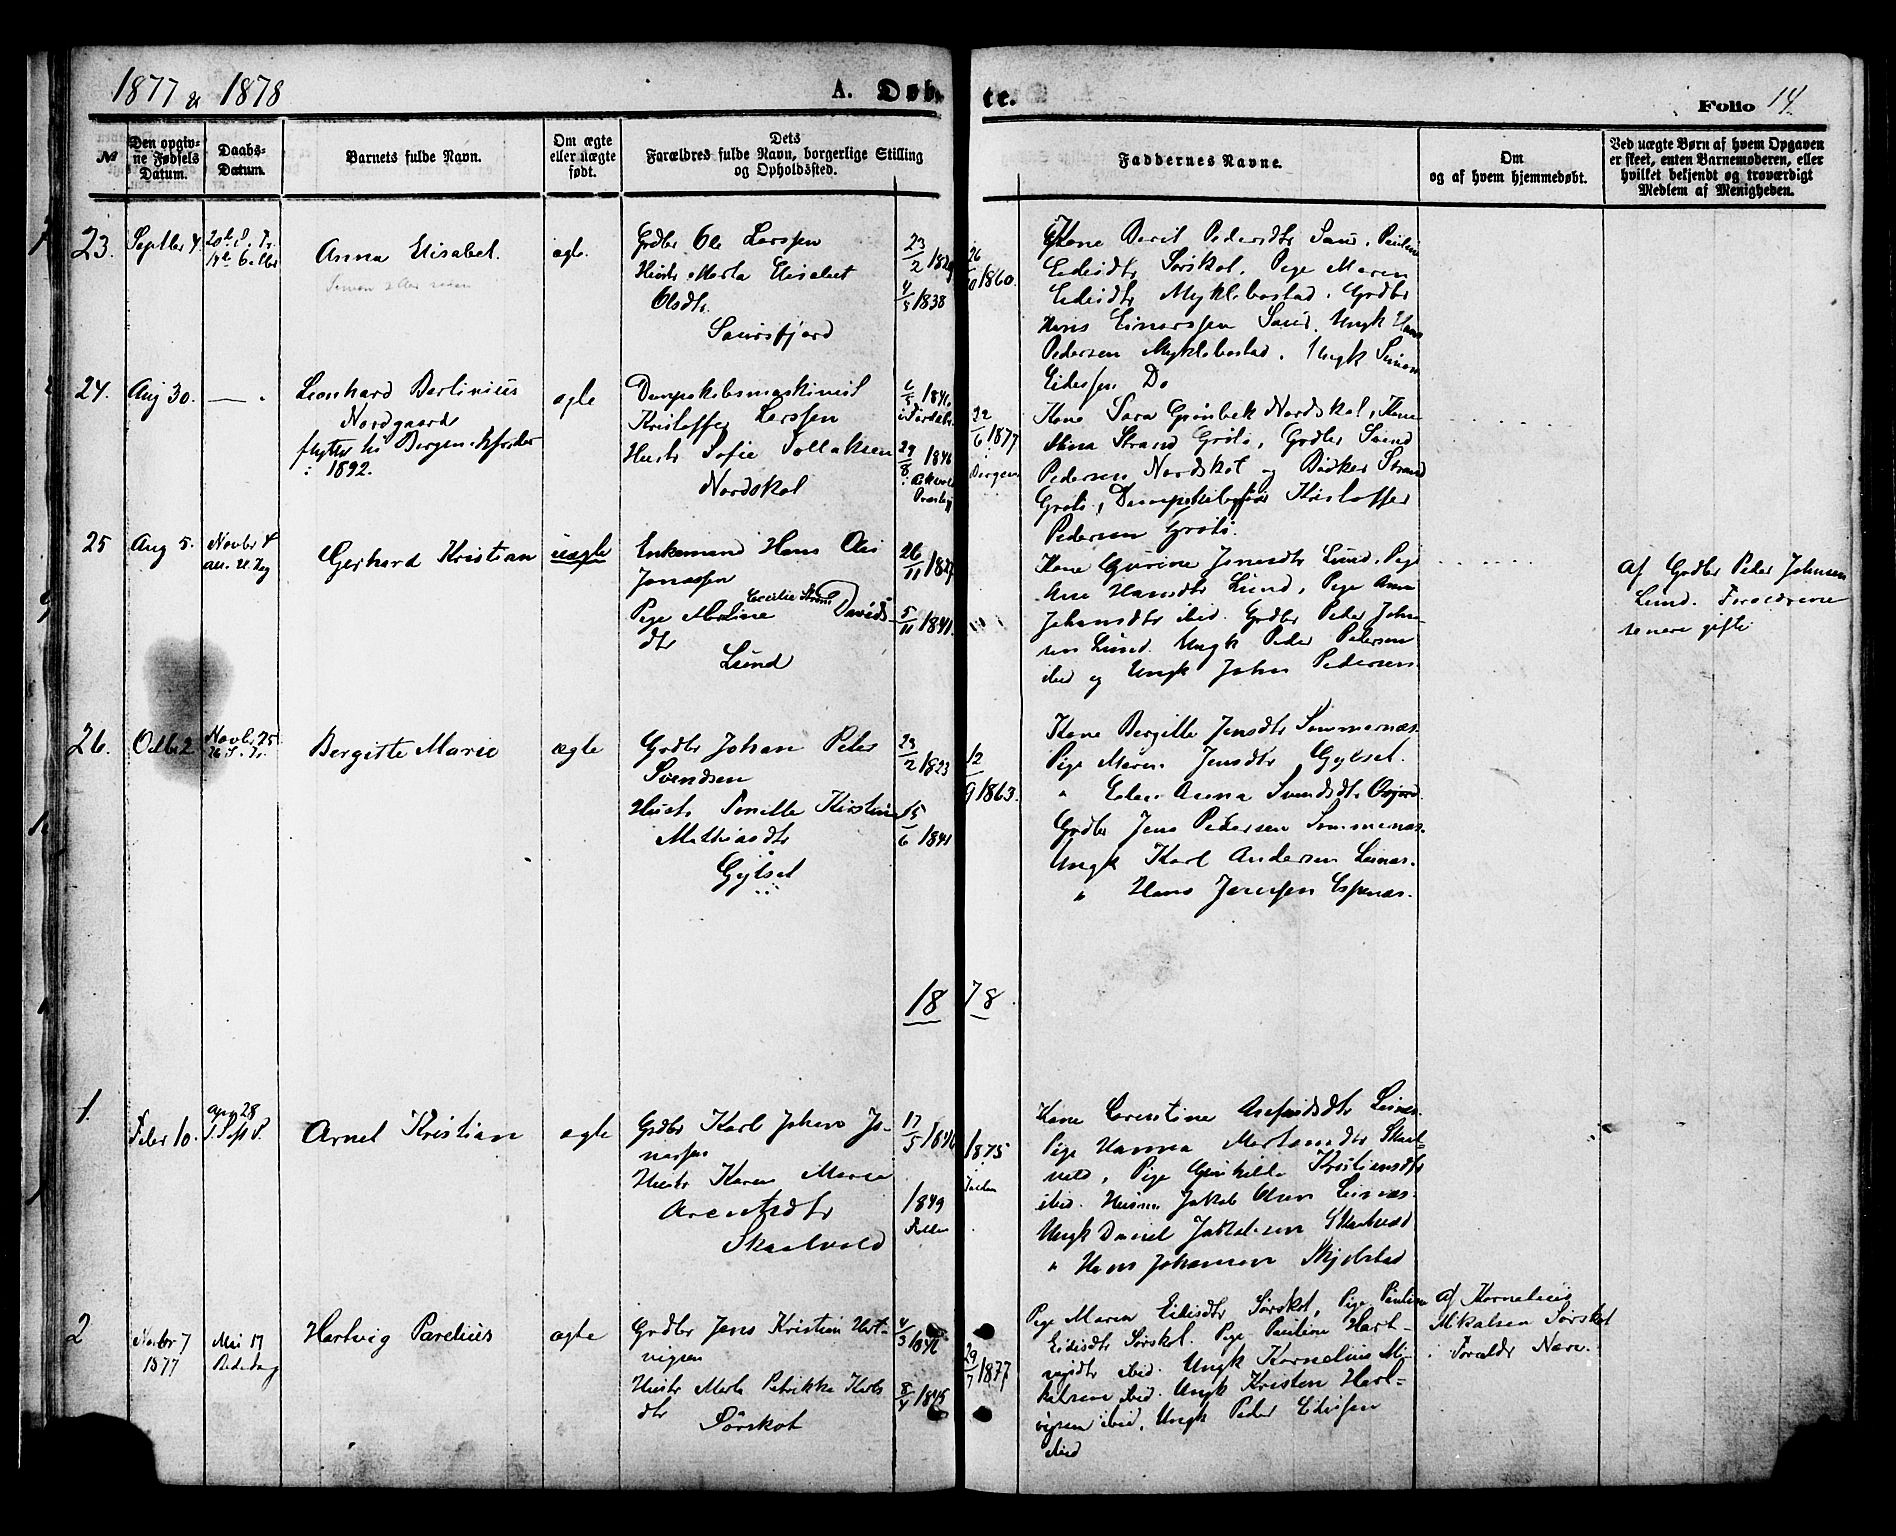 1877 & 1878
A. Døb-
te.
Folio 14.
№
Den opgiv-
ne Fødsels
Datum.
Daabs-
Datum.
Barnets fulde Navn.
Om ægte
eller uægte
født.
Dets
Forældres fulde Navn, borgerlige Stilling
og Opholdssted.
Faddernes Navne.
Om
og af hvem hjemmedøbt.
Ved uægte Børn af hvem Opgaven
er skeet, enten Barnemoderen, eller
hvilket bekjendt og troværdigt
Medlem af Menigheden.
23.
Septbr 4.
Anna Elisabet.
ægte.
Grdbr Ole Larssen
Hustr Marta Elisabet
Olsdtr.
Saursfjord
23/2
4/5 1838
26/10 1860.
Kone Berit Pedersdtr Saur, Pauline
Eidisdtr Sørskot, Pige Maren
Eidisdtr Myklebostad. Grdbr
Hans Einarssen Saur. Ungk Hans
Pedersen Myklebostad. Ungk Simon
Eidissen Do
24.
Aug 30.
Leonhard Berlinius
Nordgaard
flytter til Bergen
1892.
ægte
Dampskibsmaskinist
Kristoffer Larssen
Hustr Sofie Tollaksen
Nordskot
29/8 1846
22/6 1877
i Bergen
Kone Sara Grønbek Nordskot, Kone
Anna Strand Grøtø, Grdbr Svend
Pedersen Nordskot og Strand
Grøtø, Kristoffer
Pedersen Grøtø.
25
Aug 5.
Novbr 4
Gerhard Kristian
uægte
Enkemand Hans Olai
Jonassen
Pige Martine Cecilie Davids-
dtr
Lund
26/11 1827
5/11 1841.
Kone Gurine Jonsdtr Lund. Pige
Ane Hansdtr Lund, Pige Anne
Johansdtr ibid. Grdbr Peder John-
sen Lund. Ungk Peder Pedersen
ibid og Ungk John Pedersen.
Af Grdbr Peder Johnsen
Lund. Forældrene
senere gifte
26.
Octbr 2
Novbr 25
26 S. Tr.
Bergitte Marie
ægte
Grdbr Johan Peter
Svendsen
Hustr Pernille Kirstine
Mathiasdtr
Gyltset
23/2 1823
15/6 1841
12/9 1863.
Kone Bergitte Jensdtr Sommernæs.
Pige Maren Jensdtr Gyltset.
" Anna Svendsdtr
Grdbr Jens Pedersen Sommernæs.
Ungk Karl Andersen Leinæs.
" Hans Jensen Espenæs.
1878
1.
Febr 10.
Apr 28
Arnet Kristian
ægte
Grdbr Karl Johan Jo-
nassen
Hustr Karen Marie
Arentsdtr
Skaalvold
17/5
1849
Folden
1875
Folden
Kone Lorentine Leinæs.
Pige Hanna Mortensdtr Skaal-
vold, Pige Gunhilde Kristiansdtr
ibid. Husm. Jakob Olsen Leinæs.
Ungk Daniel Jakobsen
" Hans Johannsen Skjelstad
2
Novbr 7
1877
Mai 17
Bededag
Hartvig Parelius
ægte
Grdbr Jens Kristian Hart-
vigsen
Hustr Marta Petrikke Karls
dtr
Sørskot
4/3
8/4 1845
29/7 1877
Pige Maren Eidisdtr Sørskot, Pige Pauline
Eidisdtr Sørskot. Pige Pauline Hart-
vigsdtr ibid. Ungk Kornelius Mi-
kalsen ibid. Ungk Kristen Hart-
vigsen ibid, Ungk Peder Eidissen
ibid
Af Kornelius
Mikalsen Sørskot
i Foræld. Nærv.